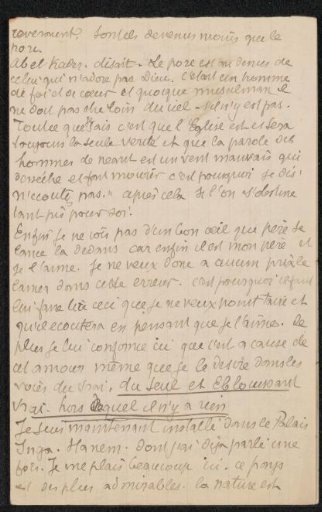 reverront. Sont ils devenus moins que le
porc.
Abel Kader. disait. Le porc est au dessus de
celui qui n'adore pas Dieu. c'était un homme
de foi et de cœur et quoique musulman il
ne doit pas être loin du ciel s'il n'y est pas.
Tout ce que sais c'est que l'Eglise est et sera
toujours la seule vérité et que la parole des
hommes de néant est un vent mauvais qui
dessèche et fait mourir c'est pourquoi je dis
"n'écoute pas." après cela si l'on s'obstine
tant pis pour soi.
Enfin je ne vois pas d'un bon œil que père se
lance là dedans car enfin il est mon père et
je l'aime. Je ne veux donc à aucun prix le
laisser dans cette erreur. c'est pourquoi
lui faire lire ceci que je ne veux point taire et
qu'il écoutera en pensant que je l'aime. De
plus je lui conjure ici que c'est à cause de
cet amour même que je le désire dans les
voies du vrai, du Seul et Eblouissant
vrai hors duquel il n'y a rien
Je suis maintenant installé dans le Palais
Inga. Hanem. dont j'ai déjà parlé une
fois. Je me plais beaucoup ici. ce pays
est des plus admirables. la nature est